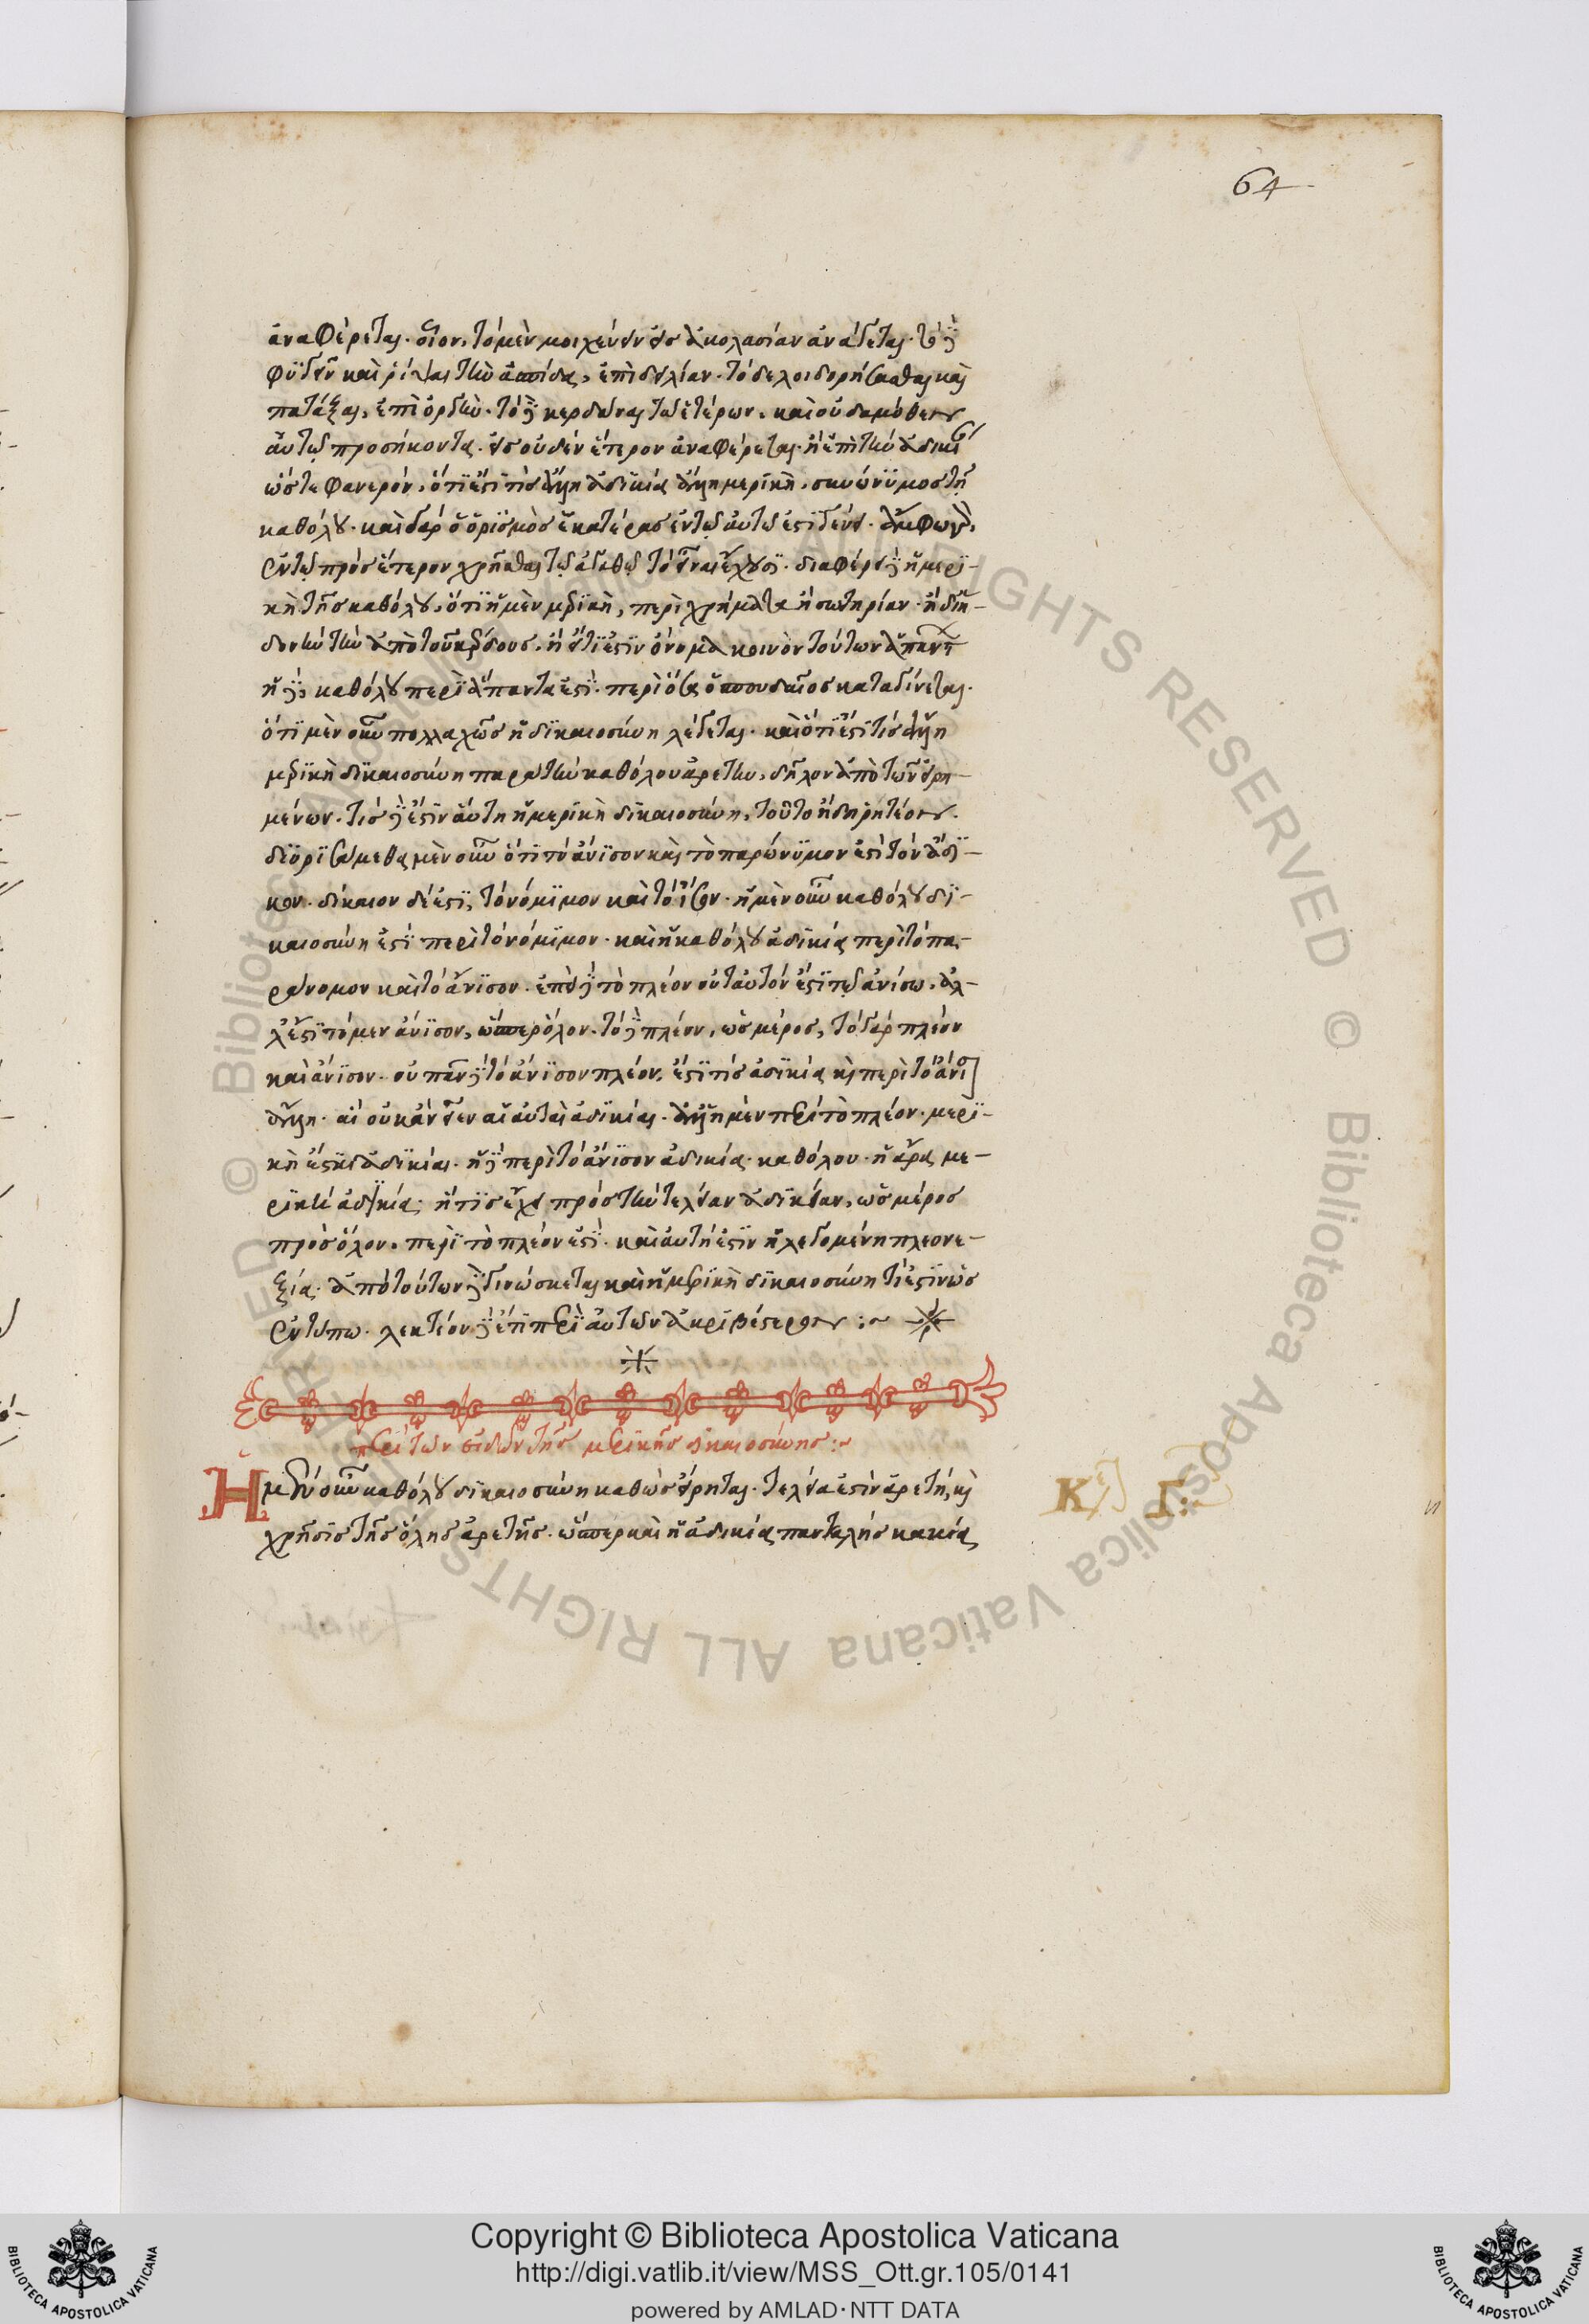 64
ἀναφέρεται. οἷον, τὸ μὲν μοιχεύειν εἰς ἀκολασίαν ἀνάγεται. τὸ δὲ
φυγεῖν καὶ ῥίψαι τὴν ἀσπίδα, ἐπὶ δειλίαν. τὸ δὲ λοιδορήσασθαι καὶ
πατάξαι, ἐπὶ ὀργήν. τὸ δὲ κερδᾶναι τῶ ἑτέρων, καὶ οὐδαμόθεν
αὐτῷ προσήκοντα. εἰς οὐδὲν ἕτερον ἀναφέρεται. ἢ ἐπὶ τὴν ἀδικί
ὥστε φανερόν, ὅτι ἐστί τις ἄλλη ἀδικία ἄλλη μερικὴ, συνώνυμος τῇ
καθόλου. καὶ γὰρ ὁ ὁρισμὸς ἑκατέρας ἐν τῷ αὐτῷ ἐστὶ γένει.
ἐν τῷ πρὸς ἕτερον χρῆσθαι τῷ ἀγαθῷ τὸ εἶναι ἔχουσι. διαφέρει δὲ ἡ μερι-
κὴ τῆς καθόλου, ὅτι ἡ μὲν μερικὴ, περὶ χρήματα ἢ σωτηρίαν. ἢ
δονὴν τὴν ἀπὸ τοῦ κέρδους. ἢ εἴ τι ἐστὶν ὄνομα κοινὸν τούτων ἁπάντ
ἡ δὲ καθόλου περὶ ἅπαντα ἐστὶ. περὶ ὅσα ὁ σπουδαῖος καταγίνεται.
ὅτι μὲν οὖν πολλαχῶς ἡ δικαιοσύνη λέγεται. καὶ ὅτι ἐστί τις ἄλλη
μερικὴ δικαιοσύνη παρὰ τὴν καθόλου ἀρετὴν, δῆλον ἀπὸ τῶν εἰρη-
μένων. τίς δέ ἐστιν αὕτη ἡ μερικὴ δικαιοσύνη, τοῦτο ἤδη ῥητέον.
διορισάμεθα μὲν οὖν ὅτι τὸ ἄνισον καὶ τὸ παρώνυμον ἐστὶ τὸν ἄδι-
κον. δίκαιον δέ ἐστι, τὸ νόμιμον καὶ τὸ ἴσον. ἡ μὲν οὖν καθόλου δι-
καιοσύνη ἐστὶ περὶ τὸ νόμιμον. καὶ ἡ καθόλου ἀδικία περὶ τὸ πα-
ράνομον καὶ τὸ ἄνισον. ἐπεὶ δὲ τὸ πλέον οὐ ταυτόν ἐστι τῷ ἀνίσω. ἀλ-
λ' ἔστι τὸ μεν ἄνισον, ὥσπερ ὅλον. τὸ δὲ πλέον, ὡς μέρος, τὸ γὰρ πλέον
καὶ ἄνισον. οὐ πᾶν δὲ τὸ ἄνισον πλέον. ἐστί τις ἀδικία καὶ περὶ τὸ ἄνισ
ἄλλη. αἳ οὐκ ἂν εἶεν αἱ αὐταὶ ἀδικίαι. ἀλλ' ἡ μὲν περὶ τὸ πλέον. μερι-
κὴ ἐστὶ ἀδικία. ἡ δὲ περὶ τὸ ἄνισον ἀδικία. καθόλου. ἡ ἄρα με-
ρικὴ ἀδικία. ἥτις ἔχει πρὸς τὴν τελείαν ἀδικείαν, ὡς μέρος
πρὸς ὅλον. περὶ τὸ πλέον ἐστὶ. καὶ αὐτή ἐστιν ἡ λεγομένη πλεονε-
ξία. ἀπὸ τούτων δὲ γινώσκεται καὶ ἡ μερικὴ δικαιοσύνη τί ἐστιν ὡς
ἐν τύπω. λεκτέον δὲ ἔτι περὶ αὐτῶν ἀκριβέστερον :~
περὶ τῶν εἰδῶν τῆς μερικῆς δικαιοσύνης :~
Ἡ μὲν οὖν καθόλου δικαιοσύνη καθὼς εἴρηται. τελεία ἐστὶν ἀρετή, καὶ
χρῆσις τῆς ὅλης ἀρετῆς. ὥσπερ καὶ ἡ ἀδικία παντελὴς κακία
Κε Γ:
© Biblioteca Apostolica Vaticana ALL RIGHTS RESERVED
Copyright © Biblioteca Apostolica Vaticana
http://digi.vatlib.it/view/MSS_Ott.gr.105/0141
powered by AMLAD·NTT DATA
BIBLIOTECA APOSTOLICA VATICANA
BIBLIOTECA APOSTOLICA VATICANA